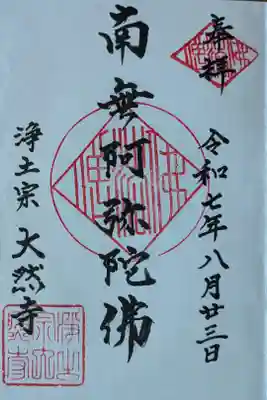 奉拝
令和七年八月廿三日
南無阿弥陀佛
浄土宗 大然寺